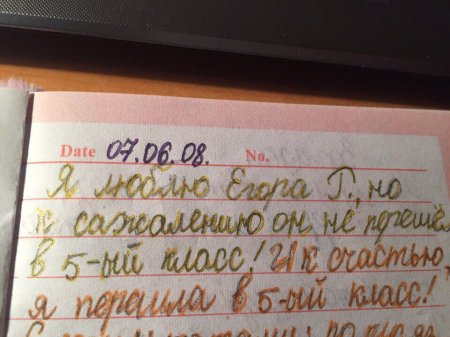 Date 07.06.08. No.
Я люблю Егора Г., но
к сажалению он не перешёл
в 5-ый класс! И к счастью
я перешла в 5-ый класс!